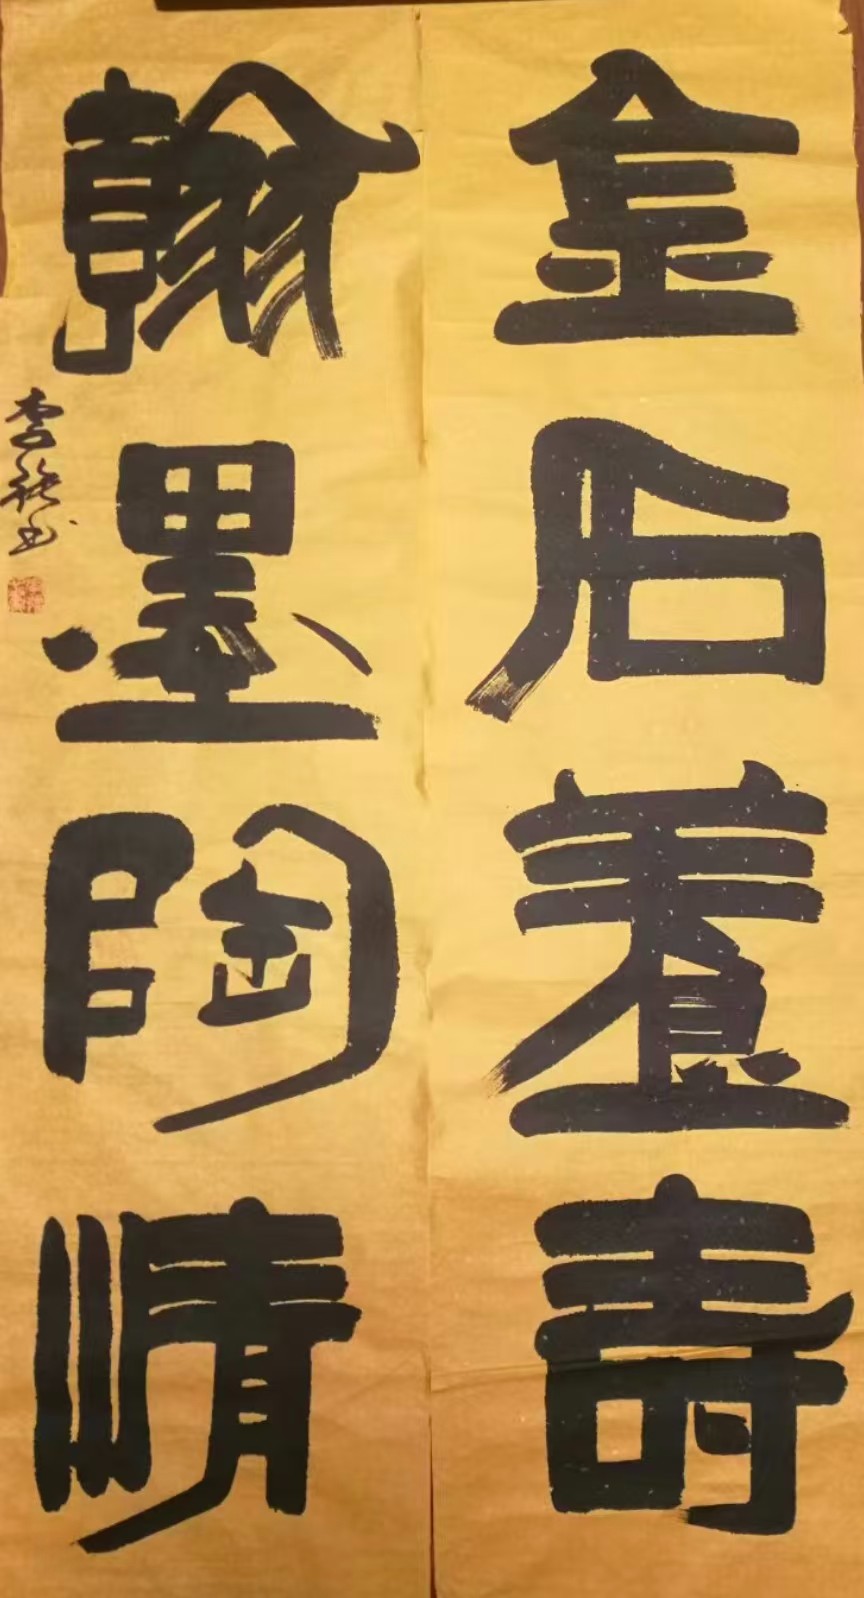 金石養壽
翰墨陶情
李 书